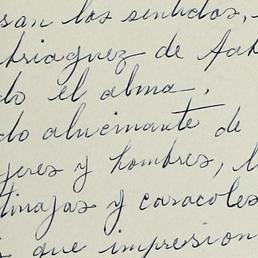 san los sentidos,
briaguez de
do el alma.
do alucinante de
jeres y hombres,
tinajas y caracoles
que impresion